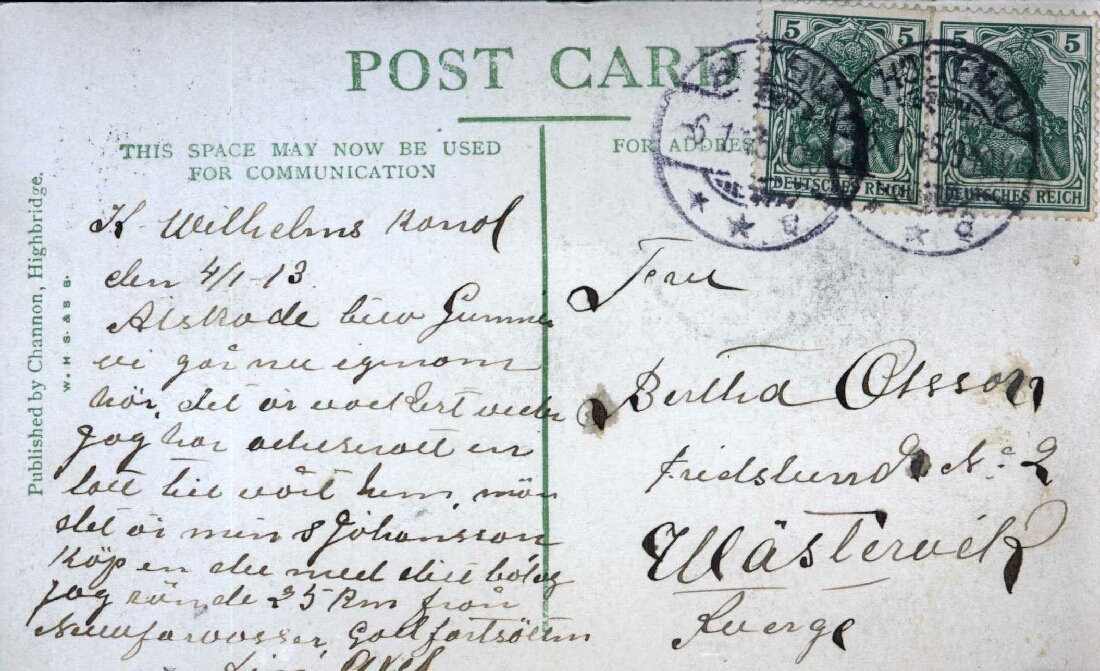 POST CARD
THIS SPACE MAY NOW BE USED
FOR COMMUNICATION
FOR ADDRESS
5 5
5 5
DEUTSCHES REICH
DEUTSCHES REICH
HOLTENAU
HOLTENAU
Published by Channon, Highbridge.
W. H. S. & S B.
K Wilhelms Kanal
den 4/1-13
Älskade lilla Gumma
vi går nu igenom
här, det är vackert väder
jag har en
lott till vårt hem, män
det är min & Johansson
Köp en du med ditt bolag
jag sände 25 Km från
Neufarvasser, God fortsättn
Axel
Fru
Bertha Olsson
Fridslund No 2
Wästervik
Sverge